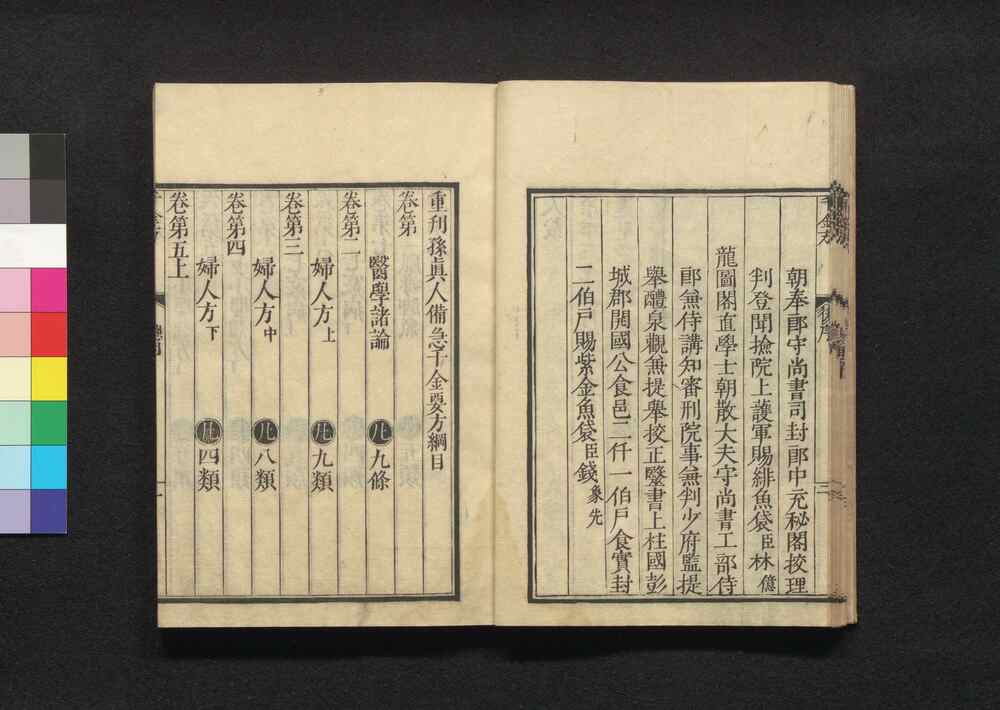 朝奉郎守尚書司封郎中充秘閣挍理
判登聞撿院上護軍賜緋魚袋臣林億
龍圖閣直學士朝散大夫守尚書工部侍
郎兼侍講知審刑院事兼判少府監提
舉醴泉觀兼提舉挍正毉書上柱國彭
城郡開國公食邑二仟一伯戸食實封
二伯戸賜紫金魚袋臣錢象先
後序
三
重刋孫真人備急千金要方綱目
卷第一
醫學諸論 凡九條
卷第二
婦人方上 凡九類
卷第三
婦人方中 凡八類
卷第四
婦人方下 凡四類
卷第五上